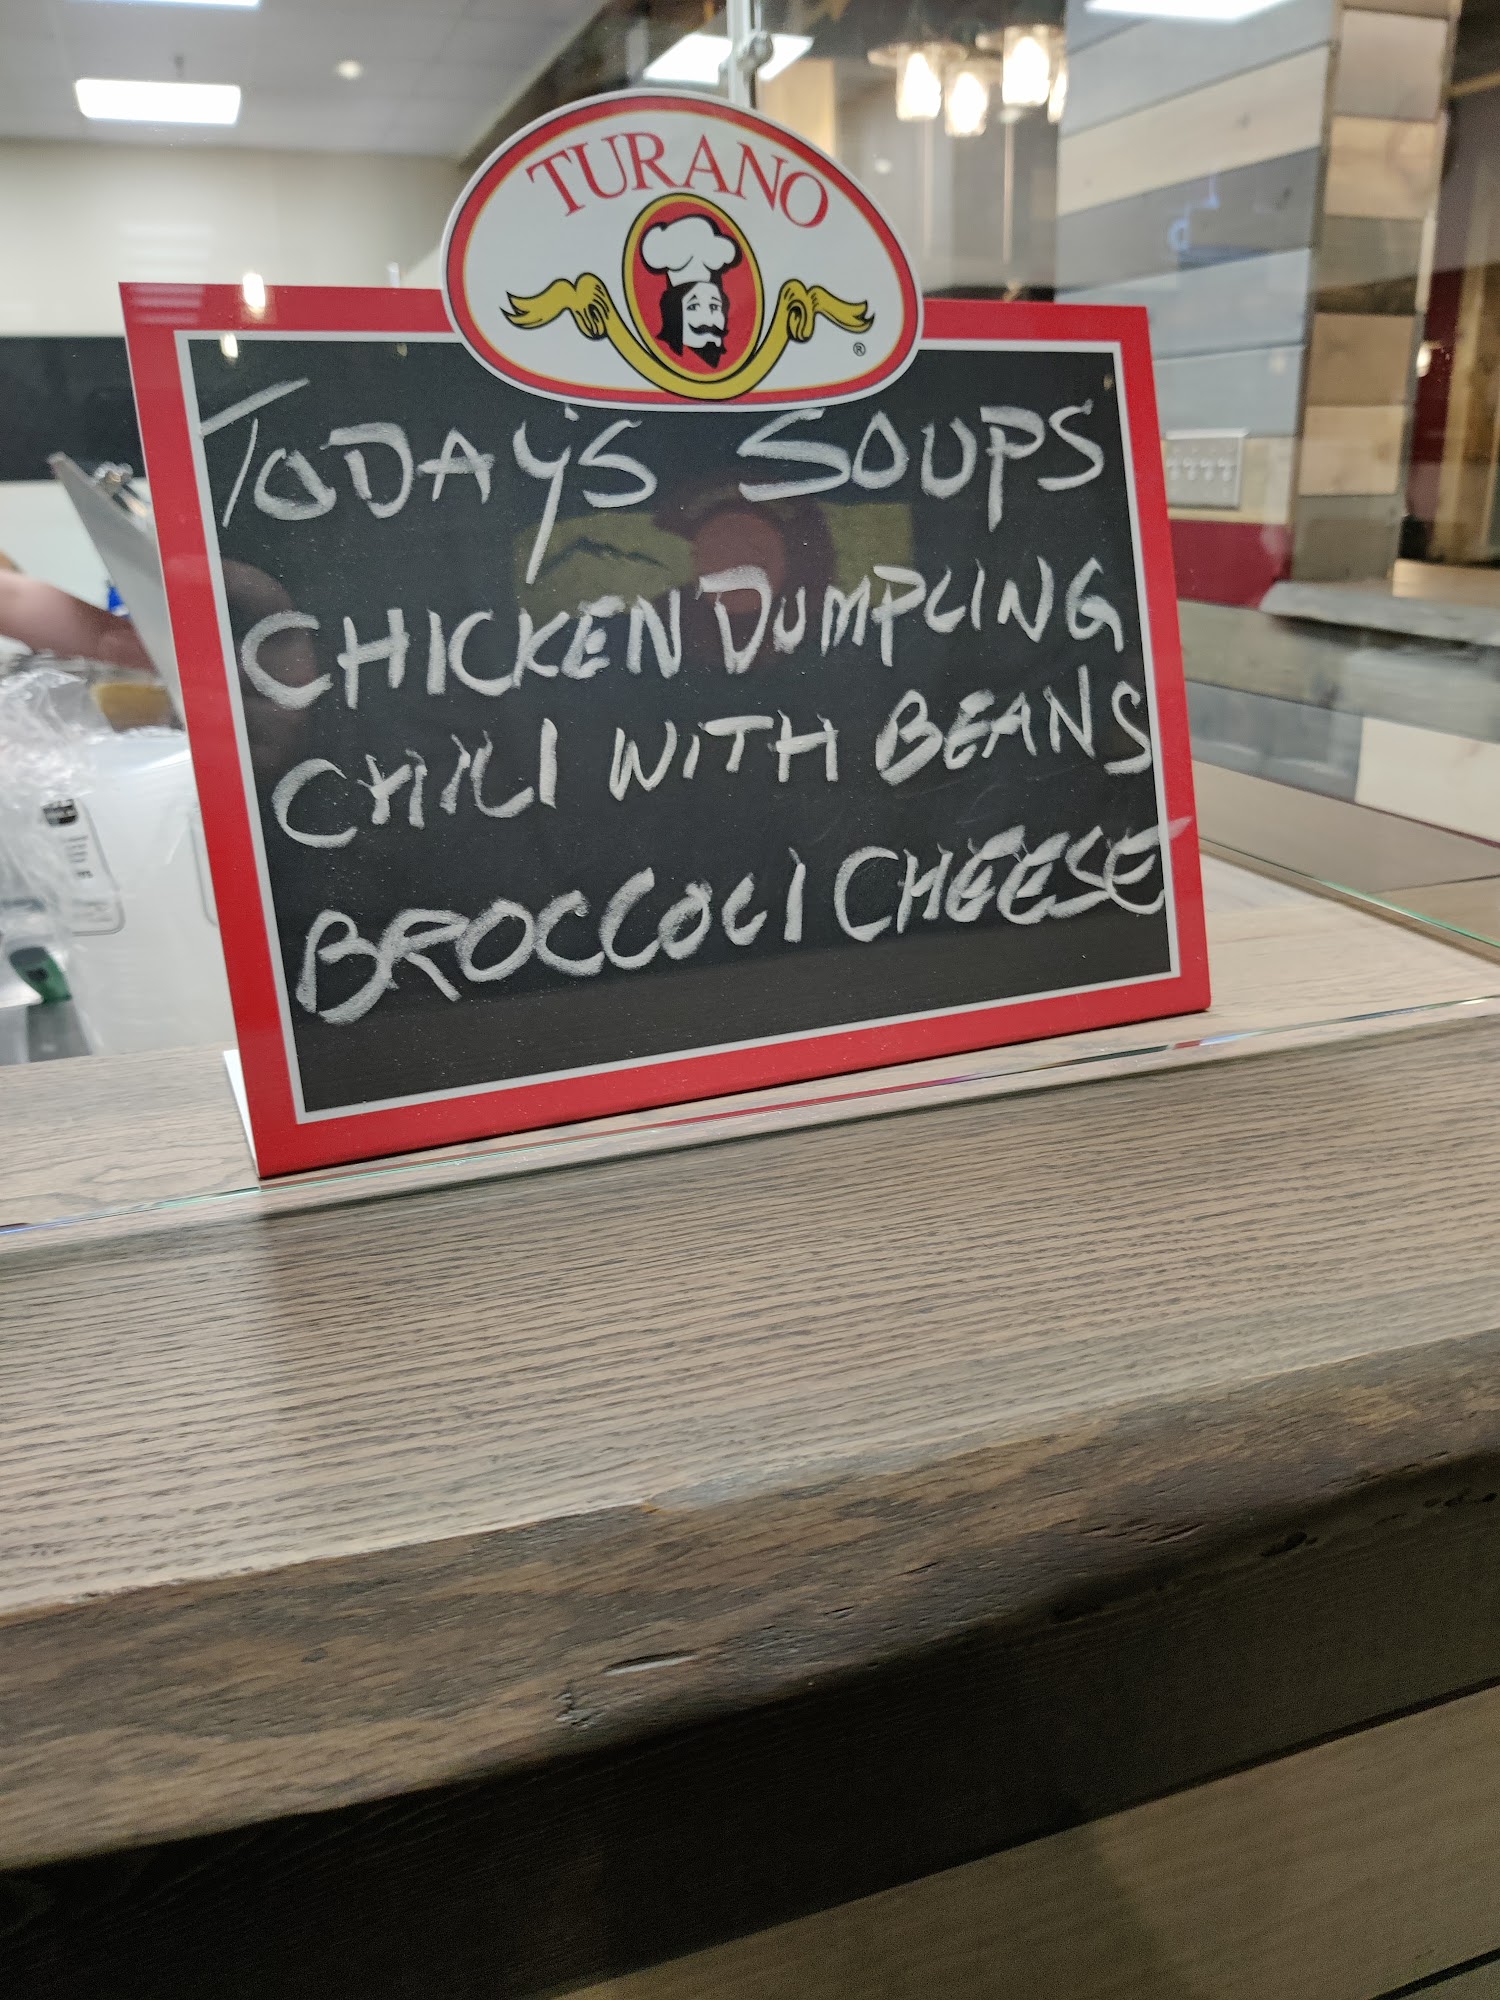 TURANO
®
TODAY'S SOUPS
CHICKEN DUMPLING
CHILI WITH BEANS
BROCCOLI CHEESE